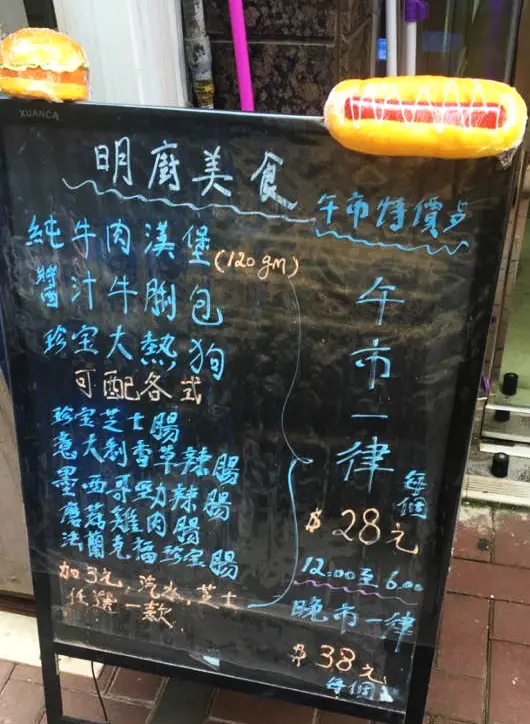 XUANCA
明廚美食
午市特價
純牛肉漢堡
(120gm)
醬汁牛脷包
珍宝大熱狗
可配各式
珍宝芝士腸
意大利香草辣腸
墨西哥勁辣腸
蘑菇雞肉腸
法蘭克福珍宝腸
加3元,汽水,芝士
任選一款
午市一律
每個
$28元
12:00至6:00
晚市一律
$38元
每個